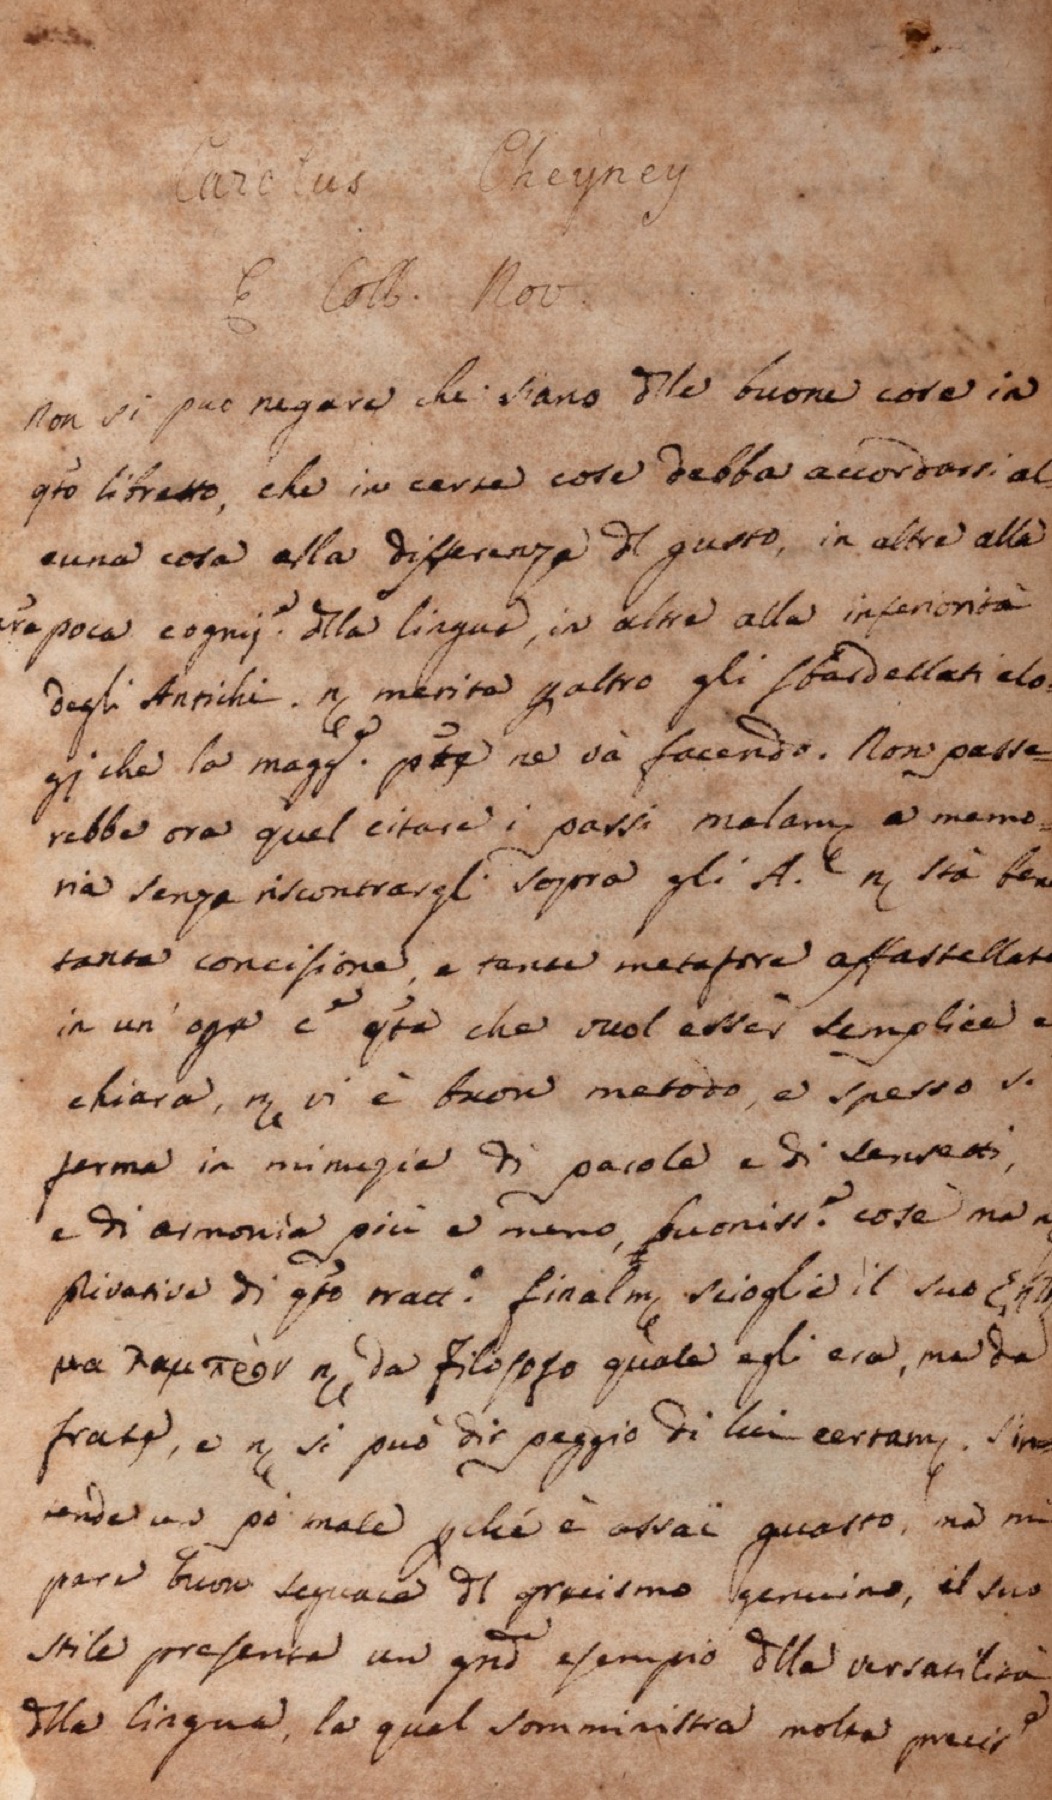 Carolus Cheyney
E Coll. Nov.
Non si può negare che siano dlle buone cose in
qto libretto, che in certe cose debba accordarsi al=
cuna cosa alla differenza dl gusto, in altre alla
poca cogniz.e dlla lingua, in altre alla inferiorità
degli Antichi. nō merita paltro gli sbardellati elo=
gj che la magg.e pte ne và facendo. Non passe=
rebbe ora quel citare i passi malamte a memo=
ria senza riscontrargli sopra gli A. nō stà ben
tanta concisione, e tante metafore affastellate
in un' opa cē qta che vuol esser semplice e
chiara, nō vi è buon metodo, e spesso si
ferma in minuzie di parole e di sensetti,
e di armonia più e meno, buoniss.e cose ma nō
privative di qto tratt.o finalmte scioglie il suo ζήτη
μα λαμπρὸν nō da Filosofo quale egli era, ma da
frate, e nō si può dir peggio di lui certamte. S'in=
tende un pò male pché è assai guasto, ma mi
pare buon seguace dl grecismo genuino, il suo
stile presenta un gnd esempio dlla versatilità
dlla lingua, la qual somministra molta precis.e